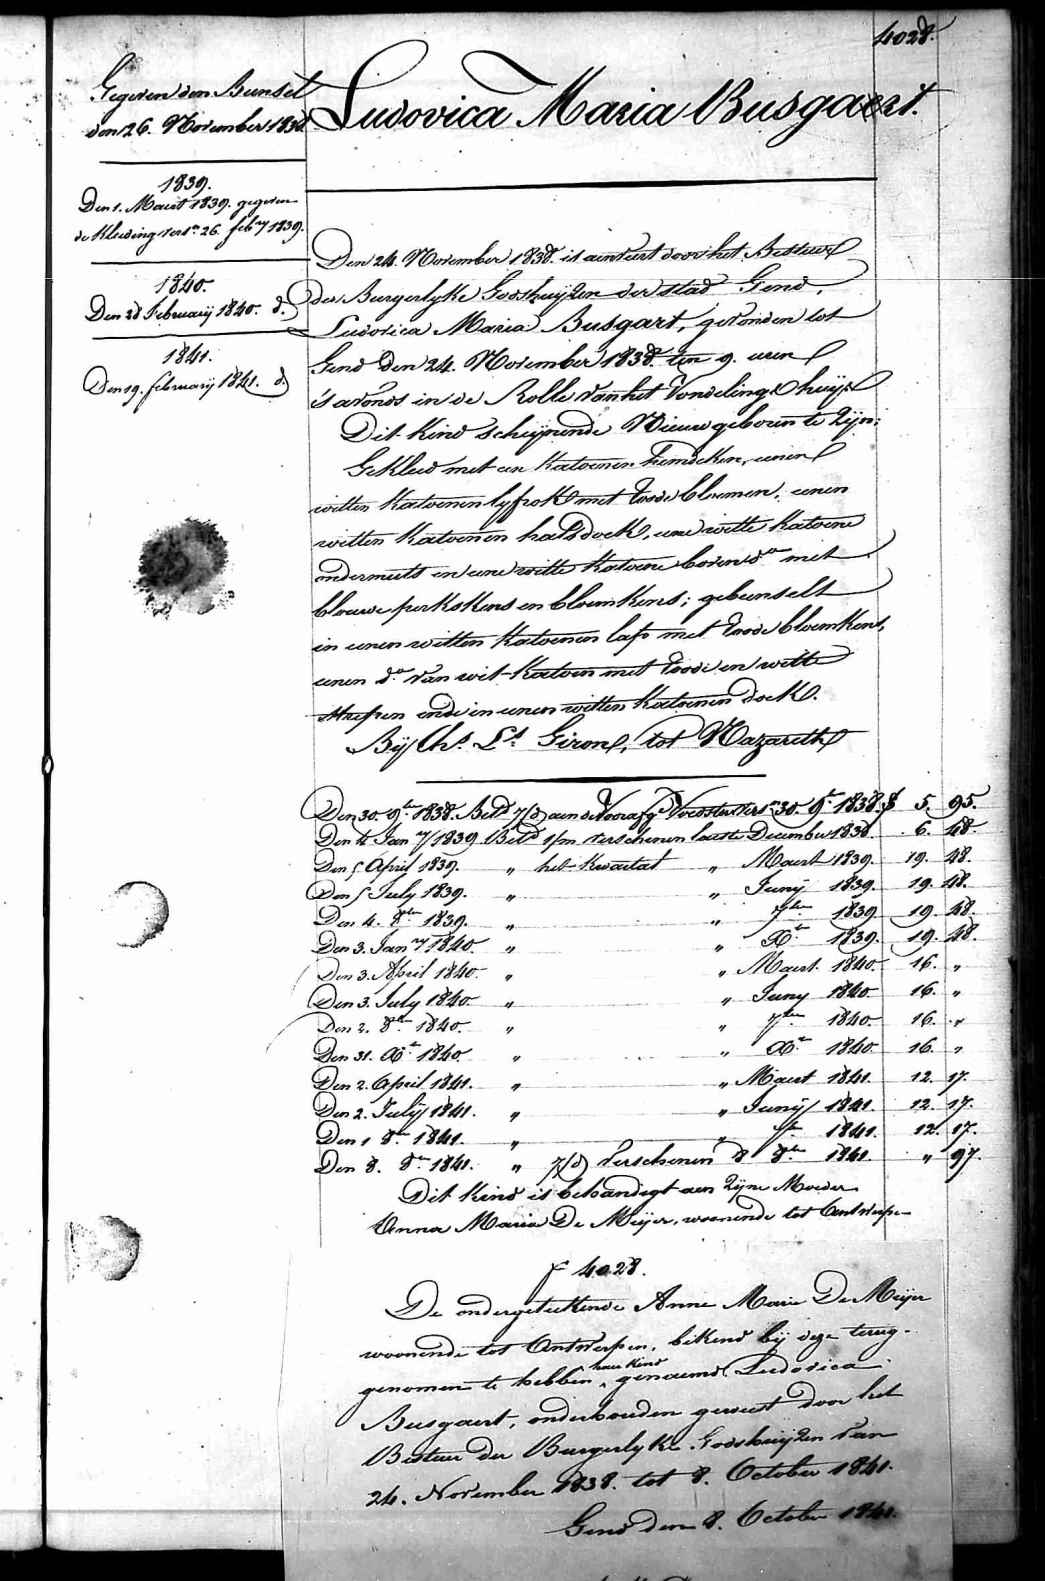 4028.
Ludovica Maria Busgaert.
Gegeven den Bunsel
den 26. November 1838.
1839.
Den 1. Maert 1839. gegeven
de Kleeding vers.n 26. feb.ry 1839.
1840.
Den 28 February 1840. d.o
1841.
Den 19. february 1841. d.o
Den 24. November 1838. is aenveert door het Bestuer
der Burgerlyke Godshuyzen der stad Gend,
Ludovica Maria Busgart, gevonden tot
Gend den 24. November 1838. ten 9. uren
's avonds in de Rolle van het Vondelingshuys
Dit kind schynende Nieuwgeboren te zyn;
Gekleed met een katoenen hemdeken, eenen
witten katoenen lyfrok met roode bloemen, eenen
witten katoenen halsdoek, eene witte katoene
ondermuts en eene witte katoene boven d.o met
blouwe perkskens en bloemkens; gebunselt
in eenen witten katoenen lap met roode bloemkens,
eenen d.o van wit katoen met roode en witte
streepen ende in eenen witten katoenen doek.
Bij Ch.s L.s Giron, tot Nazareth
Den 30. 9.ber 1838. Bet.d 7/d aen de Voorafg.e Voedster vers.n 30. 9.r 1838. f 5. 95.
Den 4 Jan.ry 1839. Bet.d 1/m verschenen laeste December 1838. 6. 48.
Den 5 April 1839. " het kwartael " Maert 1839. 19. 48.
Den 5 July 1839. " " Junij 1839. 19. 48.
Den 4. 8.ber 1839. " " 7.ber 1839 19. 48.
Den 3. Jan.ry 1840. " " X.r 1839. 19. 48.
Den 3. April 1840. " " Maert. 1840. 16. "
Den 3. July 1840. " " Juny 1840. 16. "
Den 2. 8.er 1840. " " 7.ber 1840. 16. "
Den 31. X.r 1840. " " X.r 1840. 16. "
Den 2. April 1841. " " Maert 1841. 12. 17.
Den 2. July 1841. " " Junij 1841. 12. 17.
Den 1 8.er 1841. " " 7.er 1841. 12. 17.
Den 8. 8.er 1841. " 7/d verschenen 8 8.er 1841. " 97.
Dit kind is behandigt aen zyne Moeder
Anna Maria De Meijer, woonende tot Antwerpen
f 4028.
De ondergeteekende Anne Marie De Meijer
woonende tot Antwerpen, bekend bij deze terug-
genomen te hebben haer kind genaemd Ludovica
Busgaert, onderhouden geweest door het
Bestuer der Burgerlyke Godshuyzen van
24. November 1838. tot 8. October 1841.
Gend den 8. October 1841.